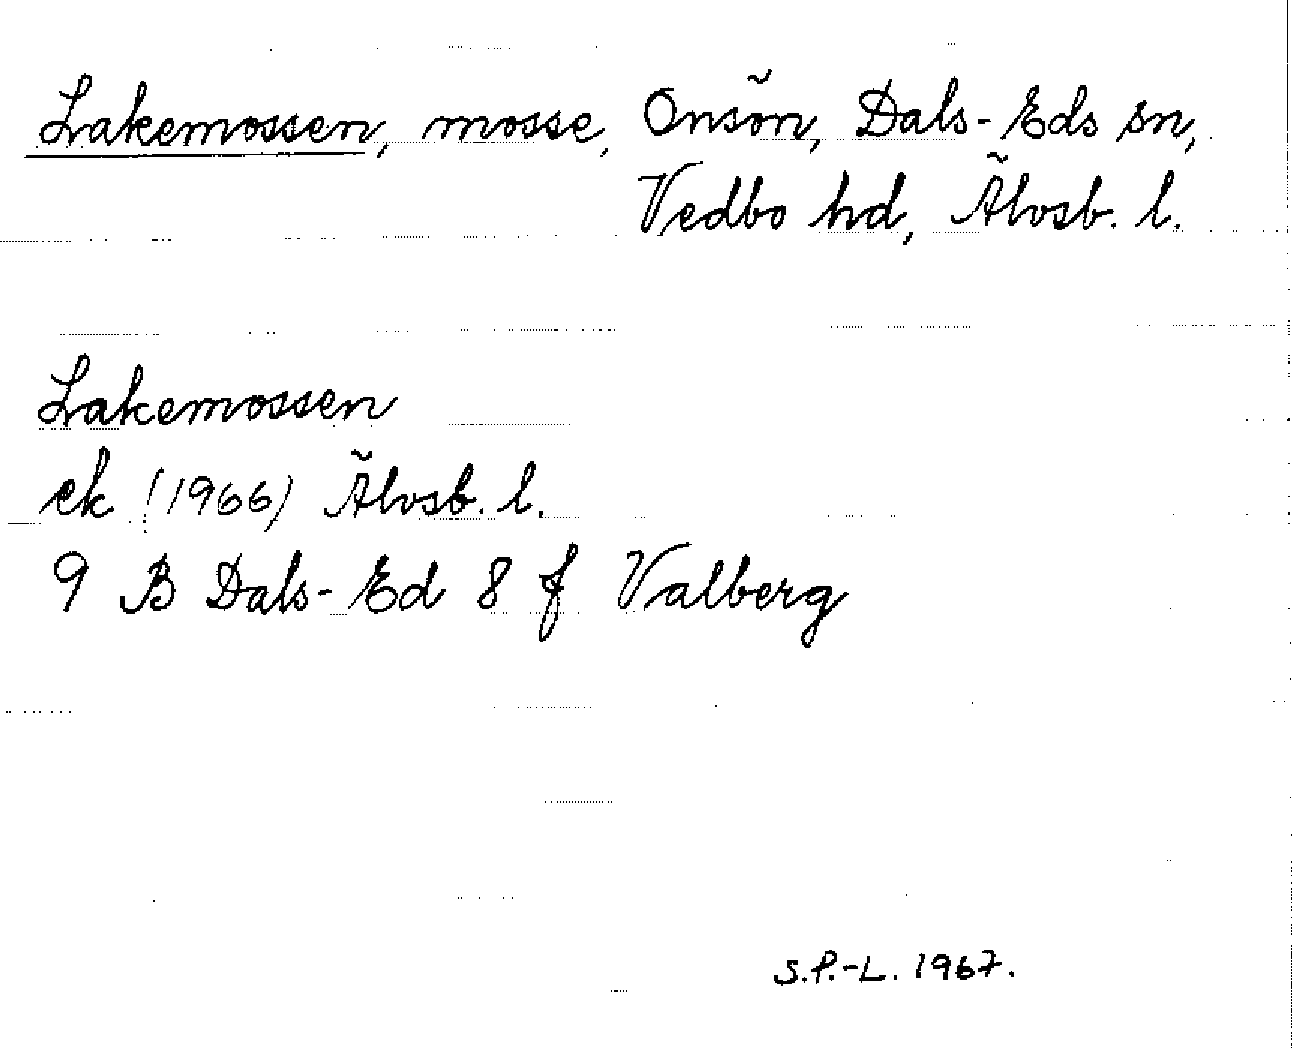 Lakemossen, mosse, Onsön, Dals-Eds sn,
Vedbo hd, Älvsb. l.
Lakemossen
ek (1966) Älvsb. l.
9 B Dals-Ed 8 f Valberg
S.P.-L. 1967.